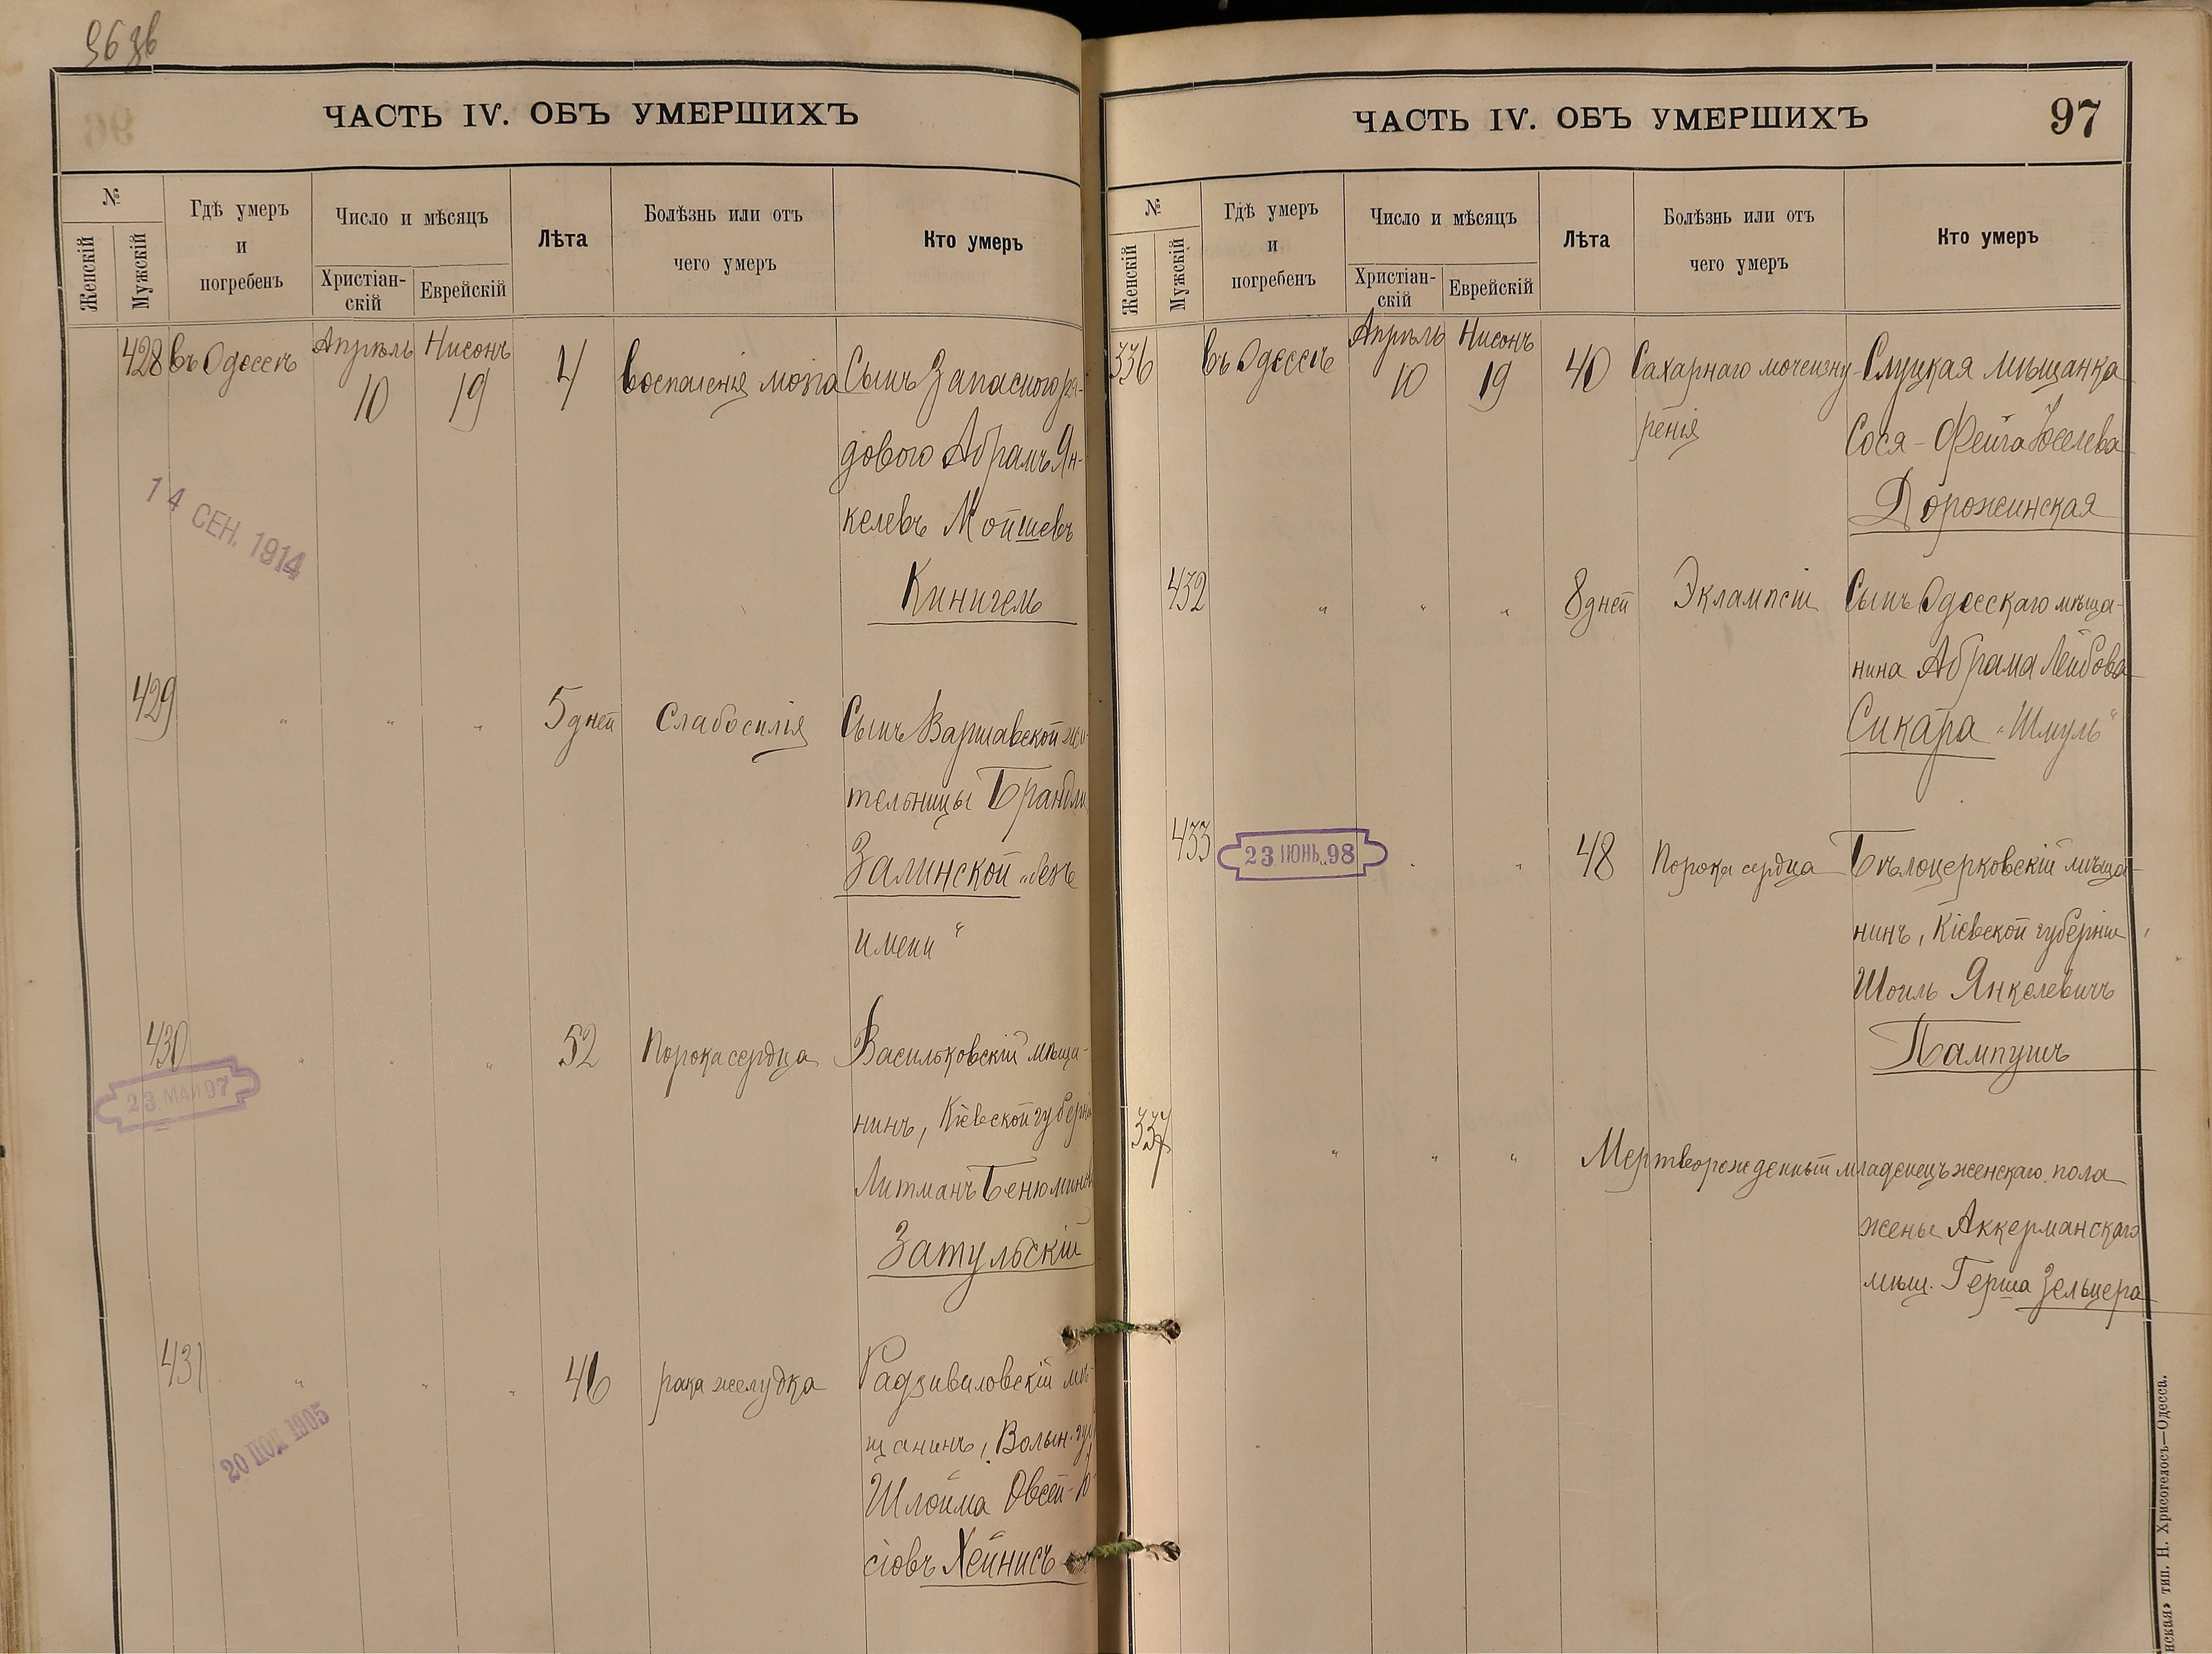 ЧАСТЬ IV. ОБЪ УМЕРШИХЪ
№
Женскій
Мужскій
Гдѣ умеръ
и
погребенъ
Число и мѣсяцъ
Христіан-
скій
Еврейскій
Лѣта
Болѣзнь или отъ
чего умеръ
Кто умеръ
428 въ Одессѣ Апрѣль 10 Нисонъ 19 4 воспаленія мозга Сынъ Запасного ря-
дового Абрамъ Ян-
келевъ Мойшевъ
Кинигель
14 СЕН. 1914
429 " " " 5 дней Слабосилія Сынъ Варшавской жи-
тельницы Брандли
Залинской „безъ
имени"
430 " " " 52 Порока сердца Васильковскій мѣща-
нинъ, Кіевской губерніи
Литманъ Бенюминовъ
Затульскій
23 МАЙ 97
431 " " " 46 рака желудка Радзивиловскій мѣ-
щанинъ, Волын. губ.
Шлойма Овсей-
сіовъ Хейнисъ
1905
ЧАСТЬ IV. ОБЪ УМЕРШИХЪ
97
№
Женскій
Мужскій
Гдѣ умеръ
и
погребенъ
Число и мѣсяцъ
Христіан-
скій
Еврейскій
Лѣта
Болѣзнь или отъ
чего умеръ
Кто умеръ
336 въ Одессѣ Апрѣль 10 Нисонъ 19 40 Сахарнаго мочеизну- Слуцкая мѣщанка
ренія Сося-Фейга Іоселева
Дорожинская
432 " " " 8 дней Эклампсіи Сынъ Одесскаго мѣща-
нина Абрама Лейбова
Сикара „Шмуль"
433 23 ІЮНЬ 98 " " 48 Порока сердца Бѣлоцерковскій мѣща-
нинъ, Кіевской губерніи,
Шоиль Янкелевичъ
Пампушъ
337 " " " Мертворожденный младенецъ женскаго пола
жены Аккерманскаго
мѣщ. Герша Зельцера
нская» тип. Н. Хрисогелосъ—Одесса.